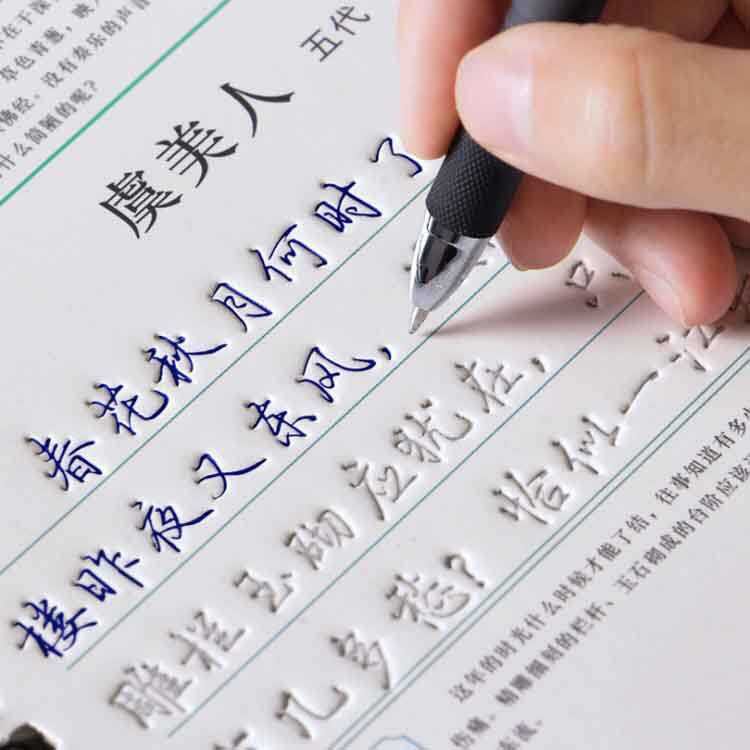 在于深
草色青葱，映入
佛经。没有奏乐的声音
什么简陋的呢？
虞美人 五代
春花秋月何时了
楼昨夜又东风，
雕栏玉砌应犹在，只
几多愁？恰似一江
这年的时光什么时候才能了结，往事知道有多少
伤痛。精雕细刻的栏杆、玉石砌成的台阶应该
流。